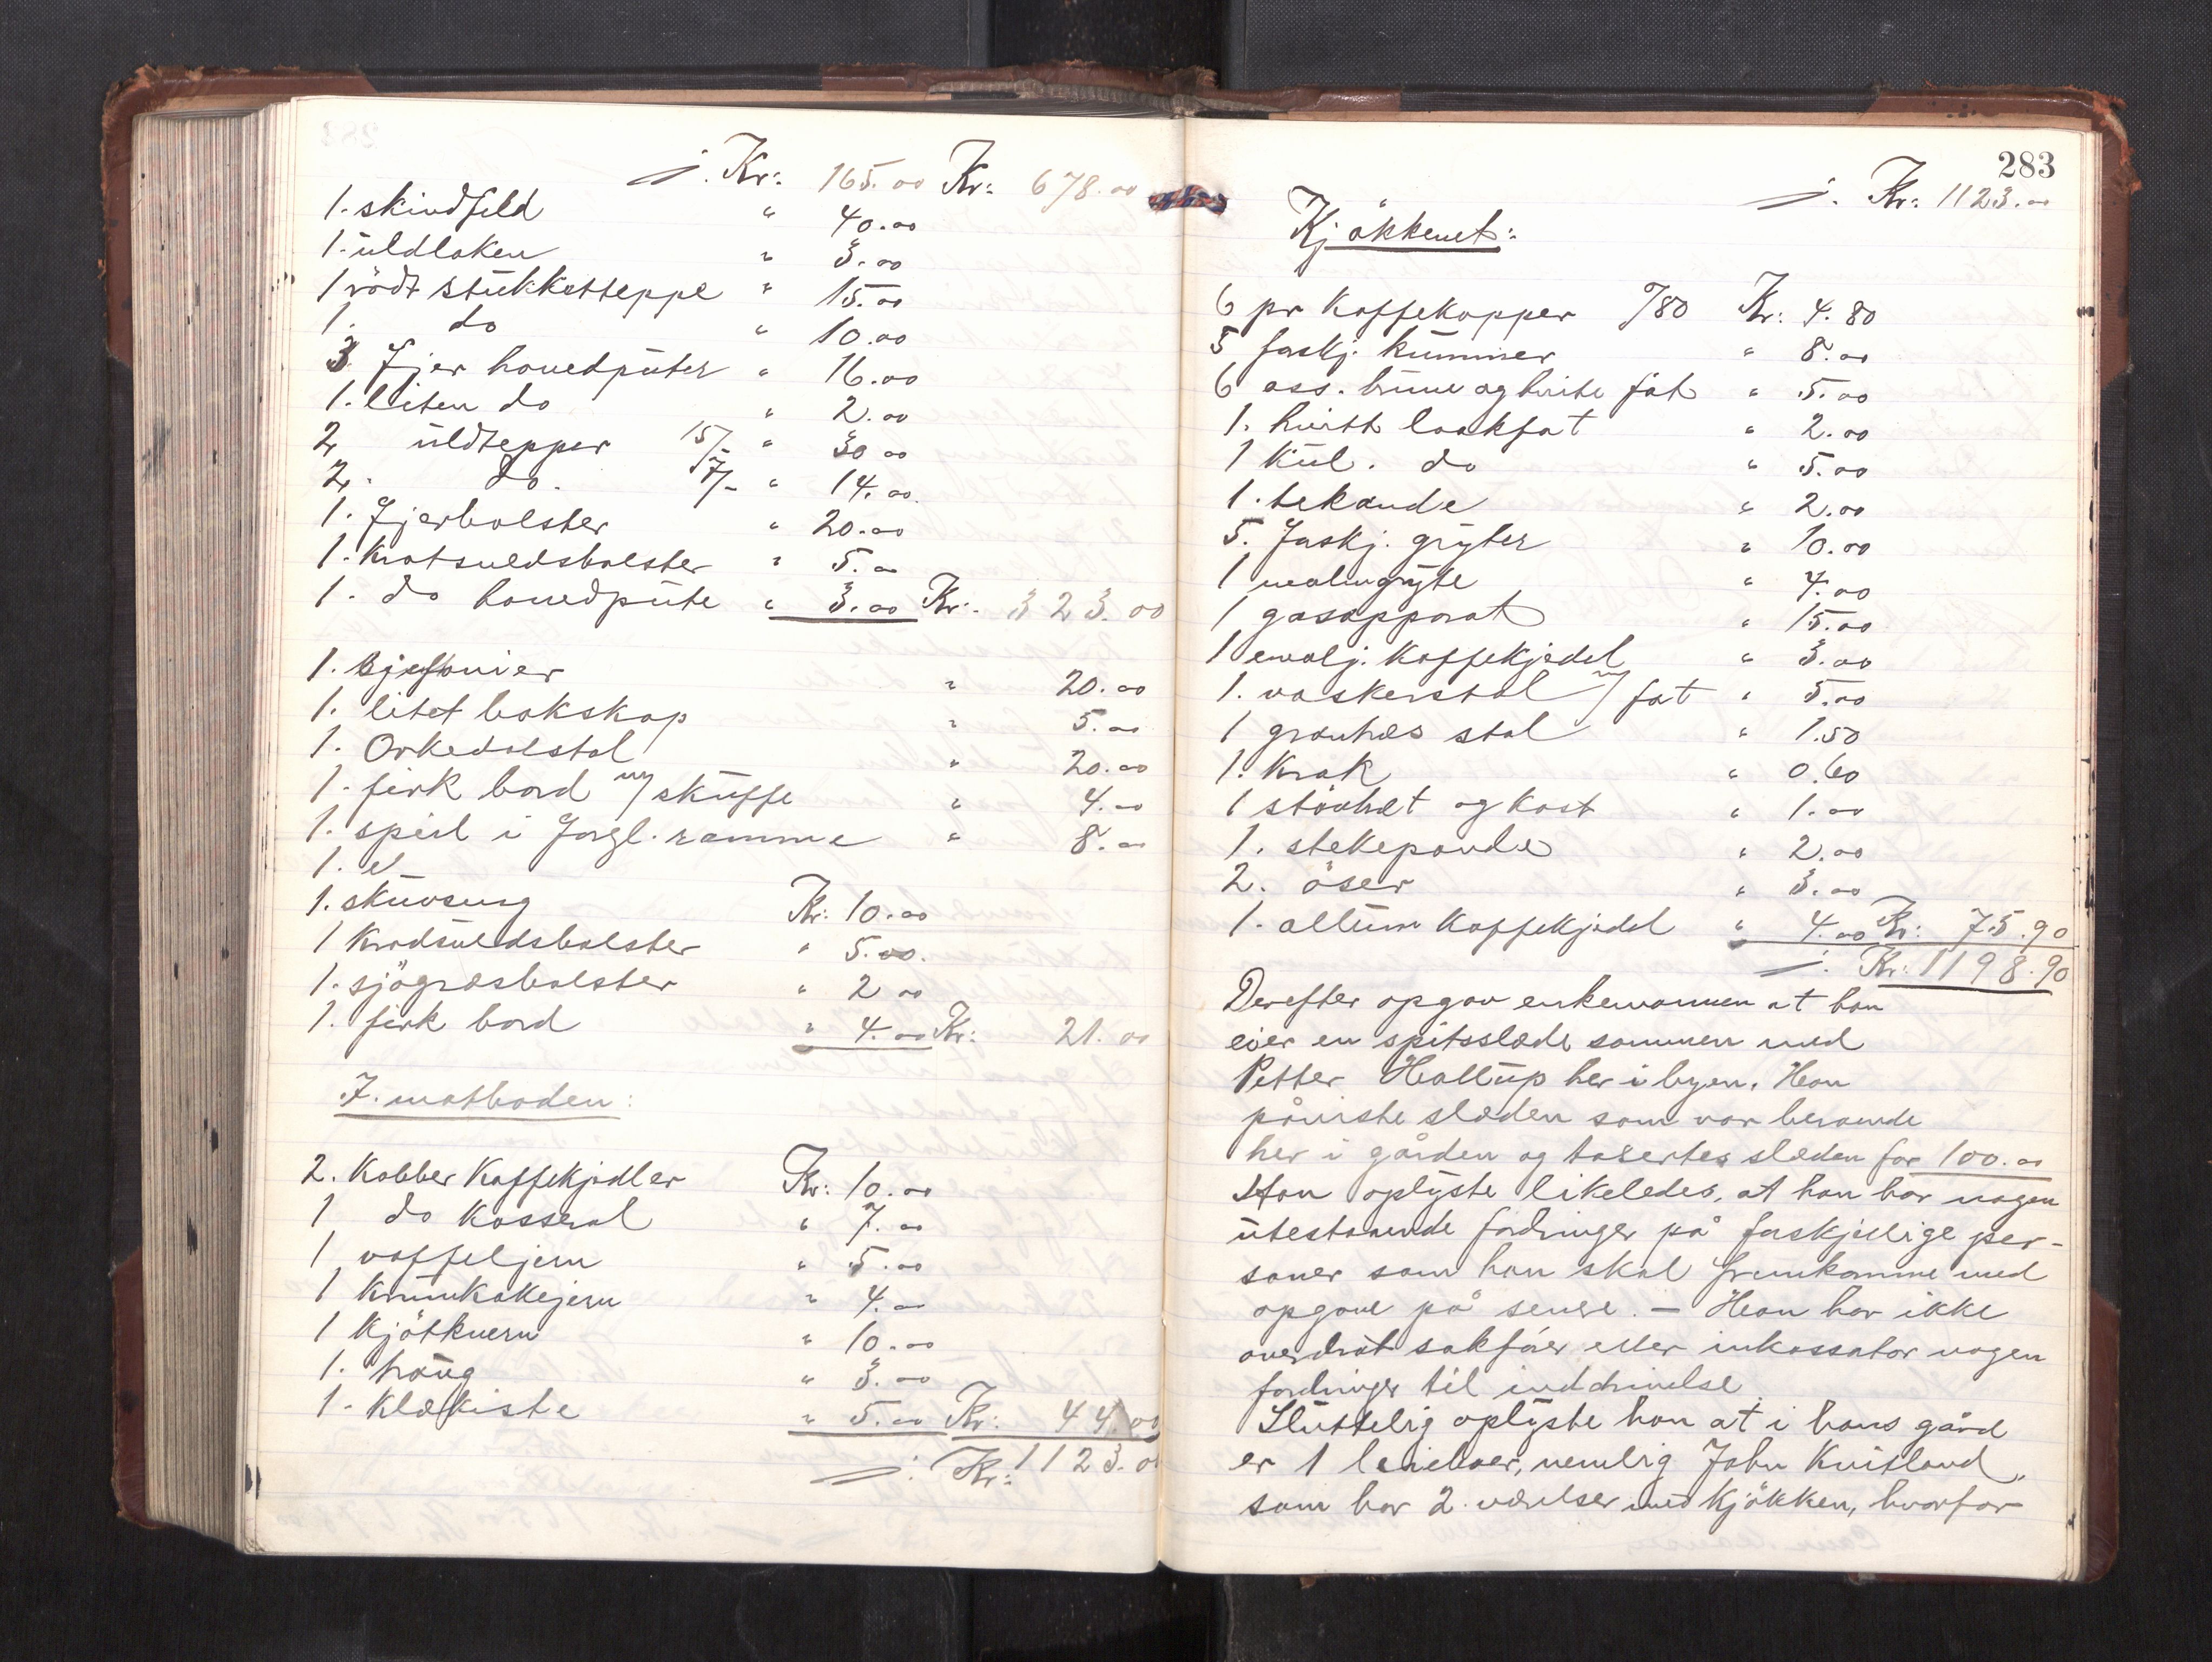 ÷. Kr: 165.00 Kr: 678.00
1. skindfeld " 40.00
1. uldlaken " 3.00
1 rödt stukketteppe " 15.00
1. do " 10.00
3 Fjer hovedputer " 16.00
1. liten do " 2.00
2 uldtepper 15/- " 30 00
2. do. 7/- " 14.00.
1. Fjerbolster " 20.00
1. Kratsuldsbolster " 5.00
1. do hovedpute " 3.00 Kr: 323.00
1. sjefonier " 20.00
1. litet bokskap " 5.00
1. Orkedalstol " 20.00
1. firk bord m/ skuffe " 4.00
1. speil i Forgl. ramme " 8.00
1. el
1. skuvseng Kr: 10.00
1 Kradsuldsbolster " 5.00.
1. sjögræsbolster " 2 00
1. firk bord " 4.00 Kr: 21.00
I. matboden:
2. Kobber Kaffekjedler Kr: 10.00
1 do Kasserol " 7.00
1 vaffeljern " 5.00
1 Krumkakejern " 4.00
1 Kjötkvern " 10.00
1. traug " 3.00
1. Klækiste " 5.00 Kr: 44.00
÷. Kr: 1123.00
283
÷. Kr: 1123.00
Kjökkenet:
6 pr Kaffekopper 7/80 Kr: 4.80
5 forskj. kummer " 8.00
6 ass. brune og hvite fat " 5.00
1. hvitt laakfat " 2.00
1 Kul. do " 5.00
1. tekande " 2.00
5. Forskj. gryter " 10.00
1 malmgryte " 4.00
1 gasapparat " 15.00
1 emalj. Kaffekjedel " 3.00
1. vaskerstol m/ fat " 5.00
1 grantræs stol " 1.50
1. Krak " 0.60
1 stövbret og kost " 1.00
1. stekepande " 2.00
2. öser " 3.00
1. allum Kaffekjedel " 4.00 Kr: 75.90
÷. Kr: 1198.90
Derefter opgav enkemannen at han
eier en spitsslæde sammen med
Petter Hallup her i byen. Han
påviste slæden som var beroende
her i gården og taxertes slæden for 100.00
Han oplyste likeledes, at han har nogen
utestaaende fordringer på forskjellige per-
soner som han skal fremkomme med
opgave på senere. – Han har ikke
overdrat sakfører eller inkassator nogen
fordringer til inddrivelse.
Sluttelig oplyste han at i hans gård
er 1 leieboer, nemlig John Kvitland,
som har 2. værelser med Kjökken, hvorfor